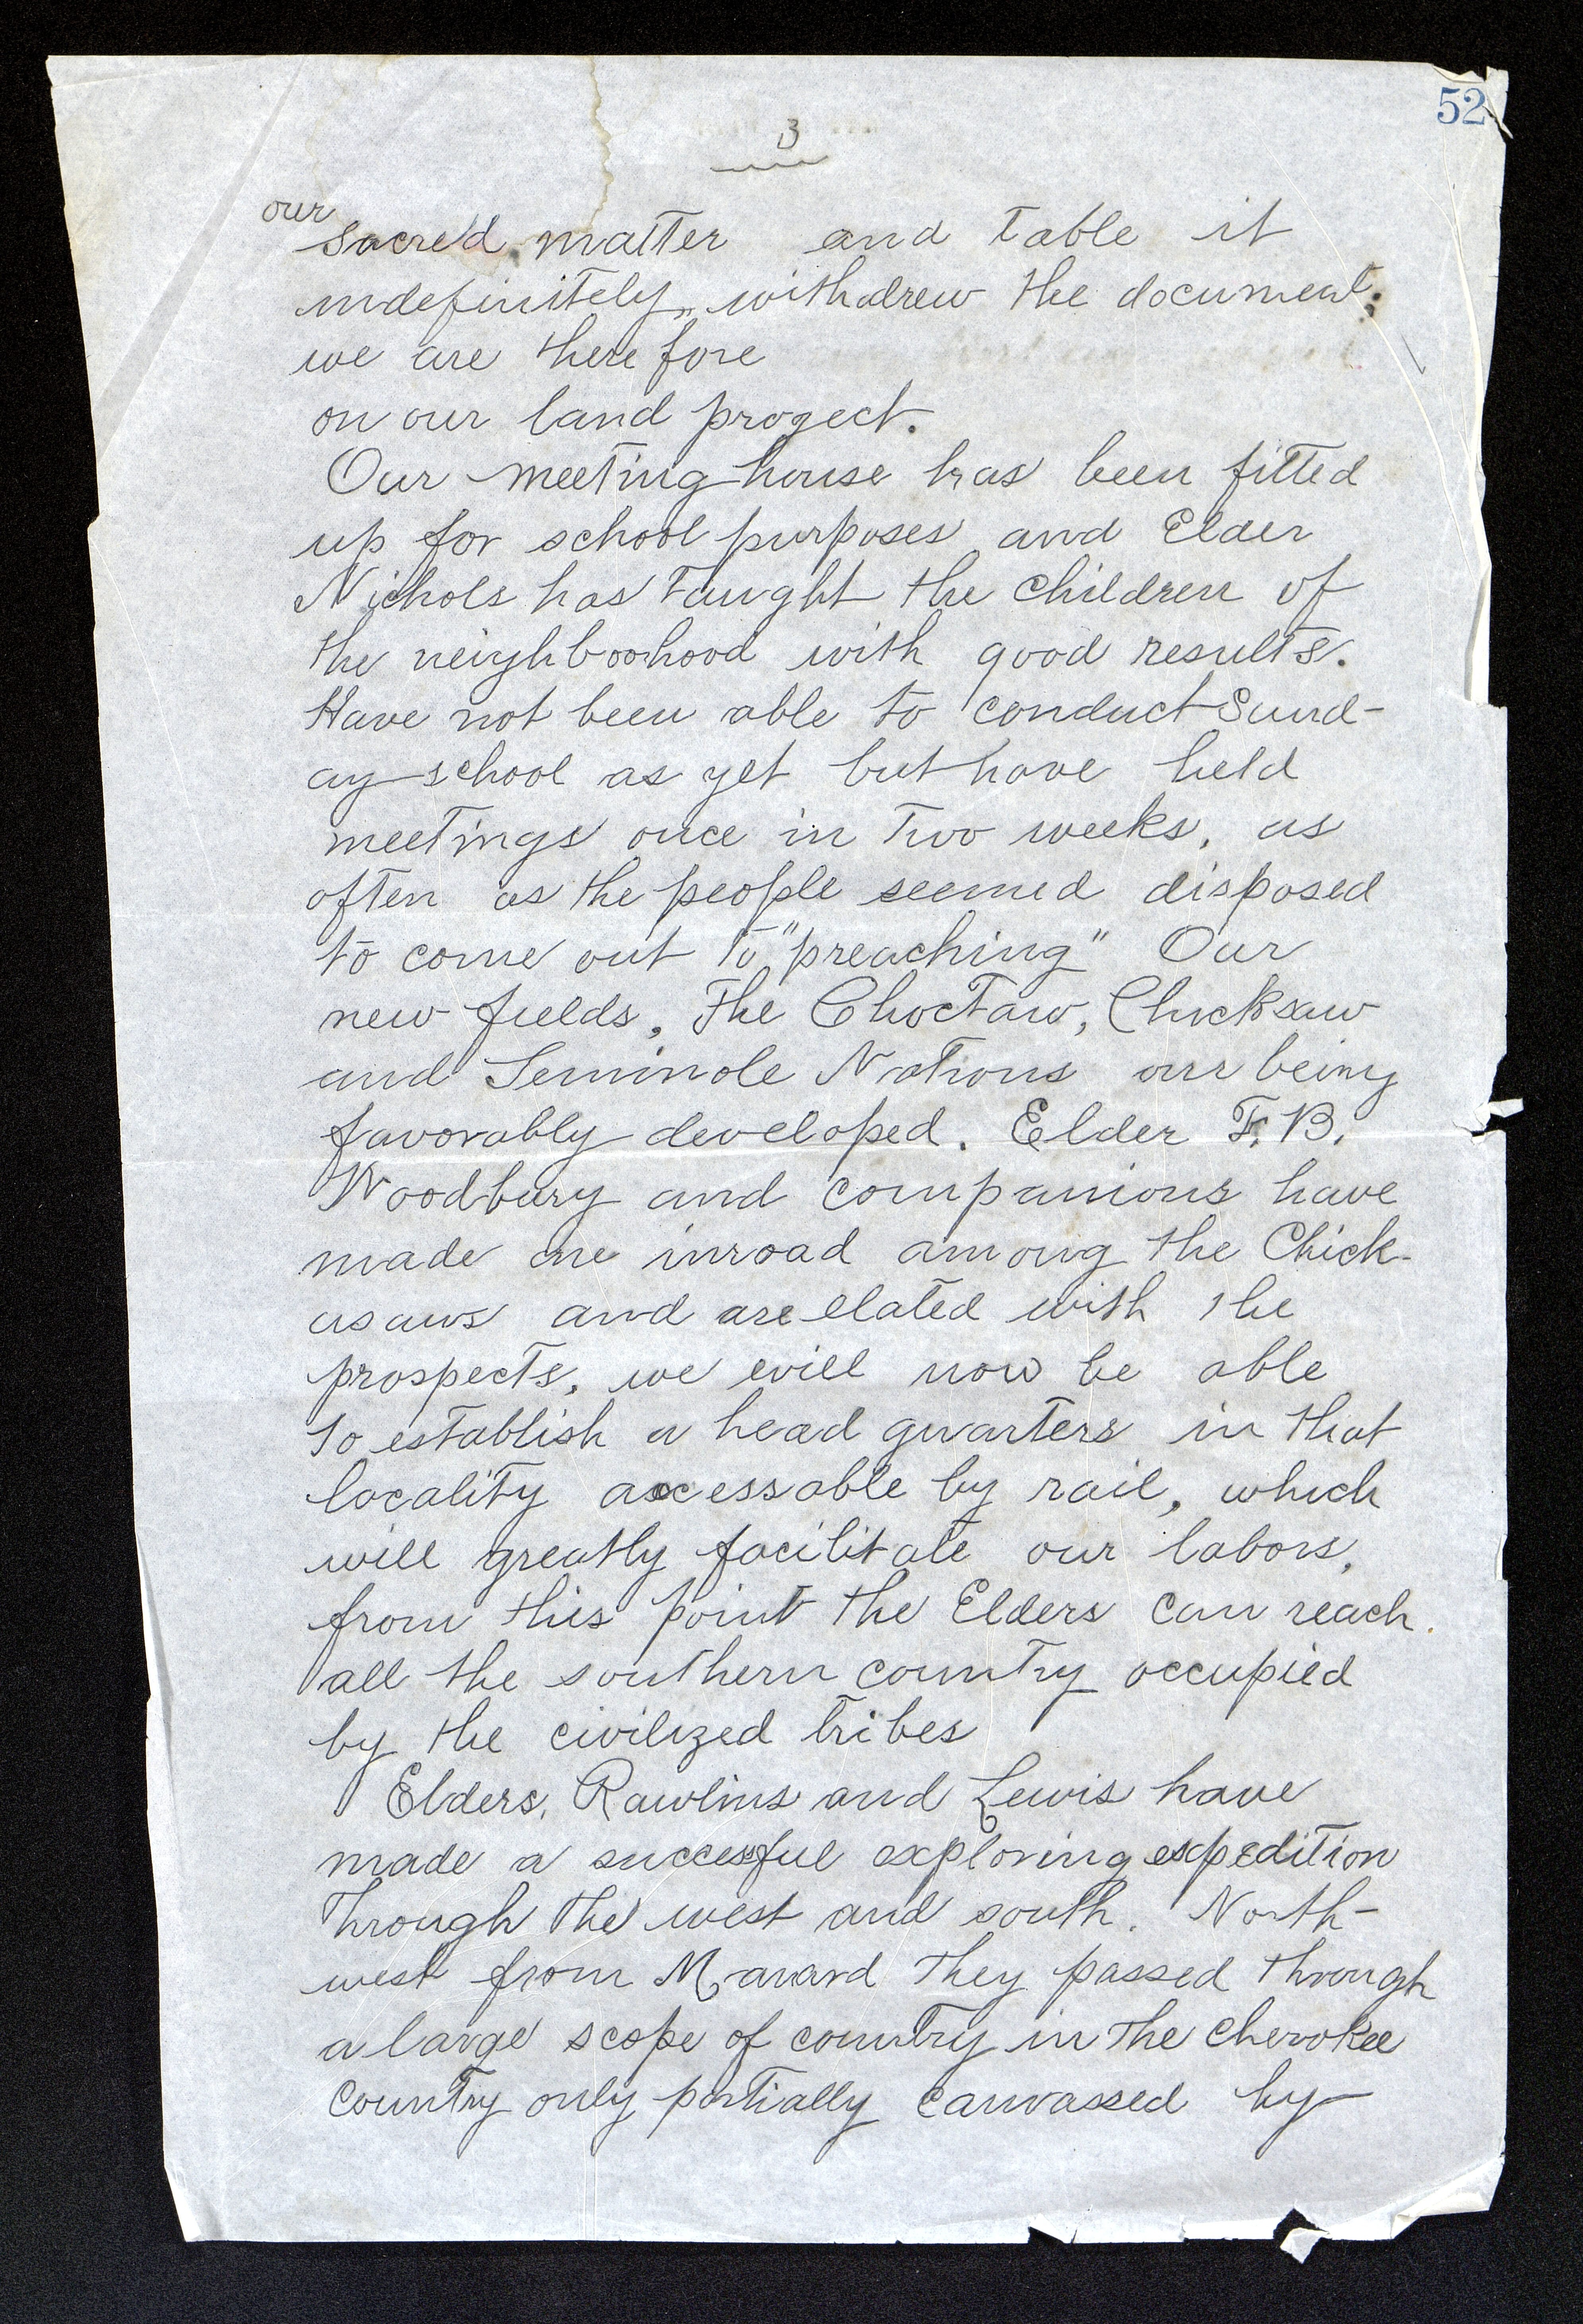 52
3
our
sacred matter and table it
indefinitely, withdrew the document;
we are therefore
on our land progect.
Our meeting house has been fitted
up for school purposes and Elder
Nichols has taught the children of
the neighboohood with good results.
Have not been able to conduct Sund-
ay school as yet but have held
meetings once in two weeks, as
often as the people seemed disposed
to come out to "preaching" Our
new fields, The Choctaw, Chicksaw
and Seminole Nations are being
favorably developed. Elder F. B.
Woodbury and companions have
made one inroad among the Chick-
asaws and are elated with the
prospects, we will now be able
to establish a head quarters in that
locality accessable by rail, which
will greatly facilitate our labors,
from this point the Elders can reach
all the southern country occupied
by the civilized tribes
Elders, Rawlins and Lewis have
made a successful exploring expedition
through the west and south. North-
west from Manard they passed through
a large scope of country in the Cherokee
country only partially canvassed by